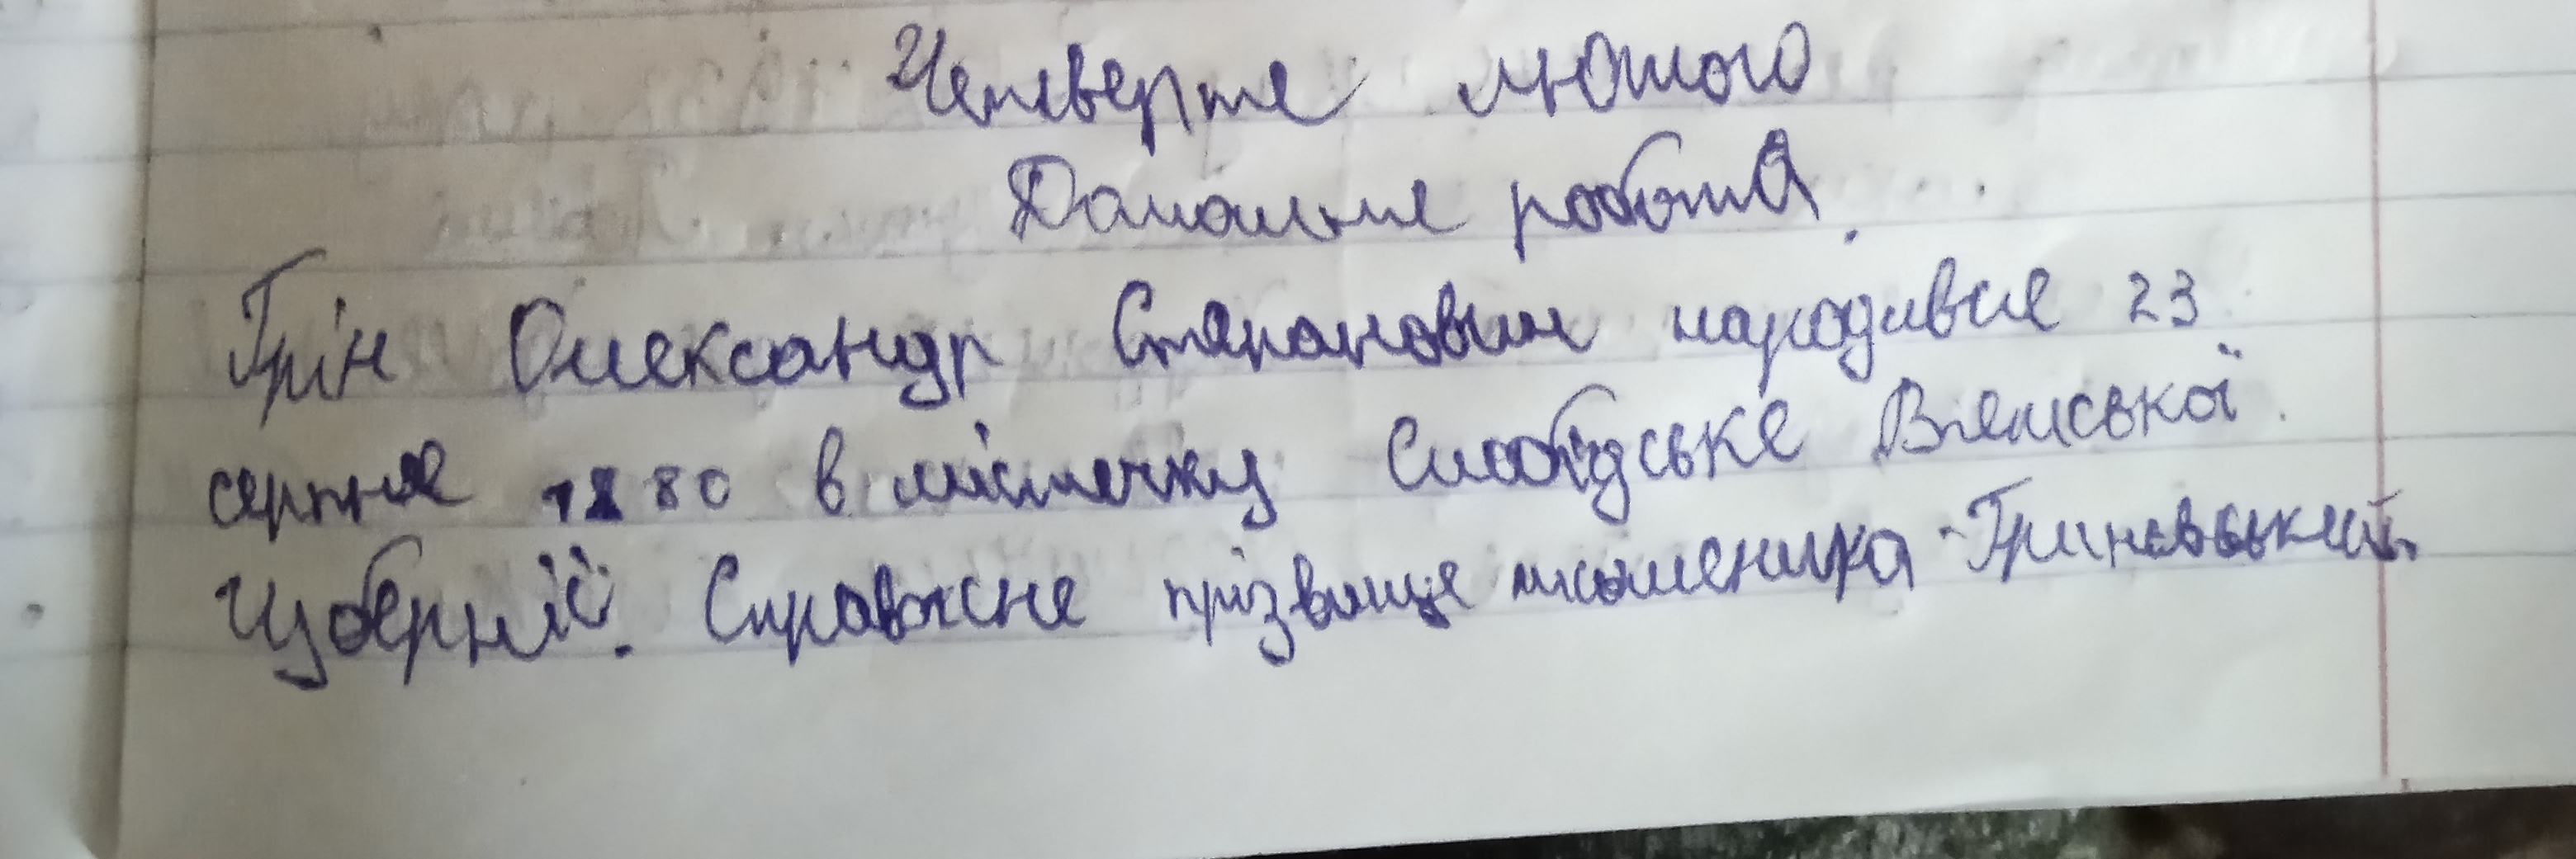 Четверте лютого
Домашня робота.
Грін Олександр Степанович народився 23
серпня 1880 в містечку Слобідське Вятської
губернії. Справжнє прізвище письменика - Гриневський.